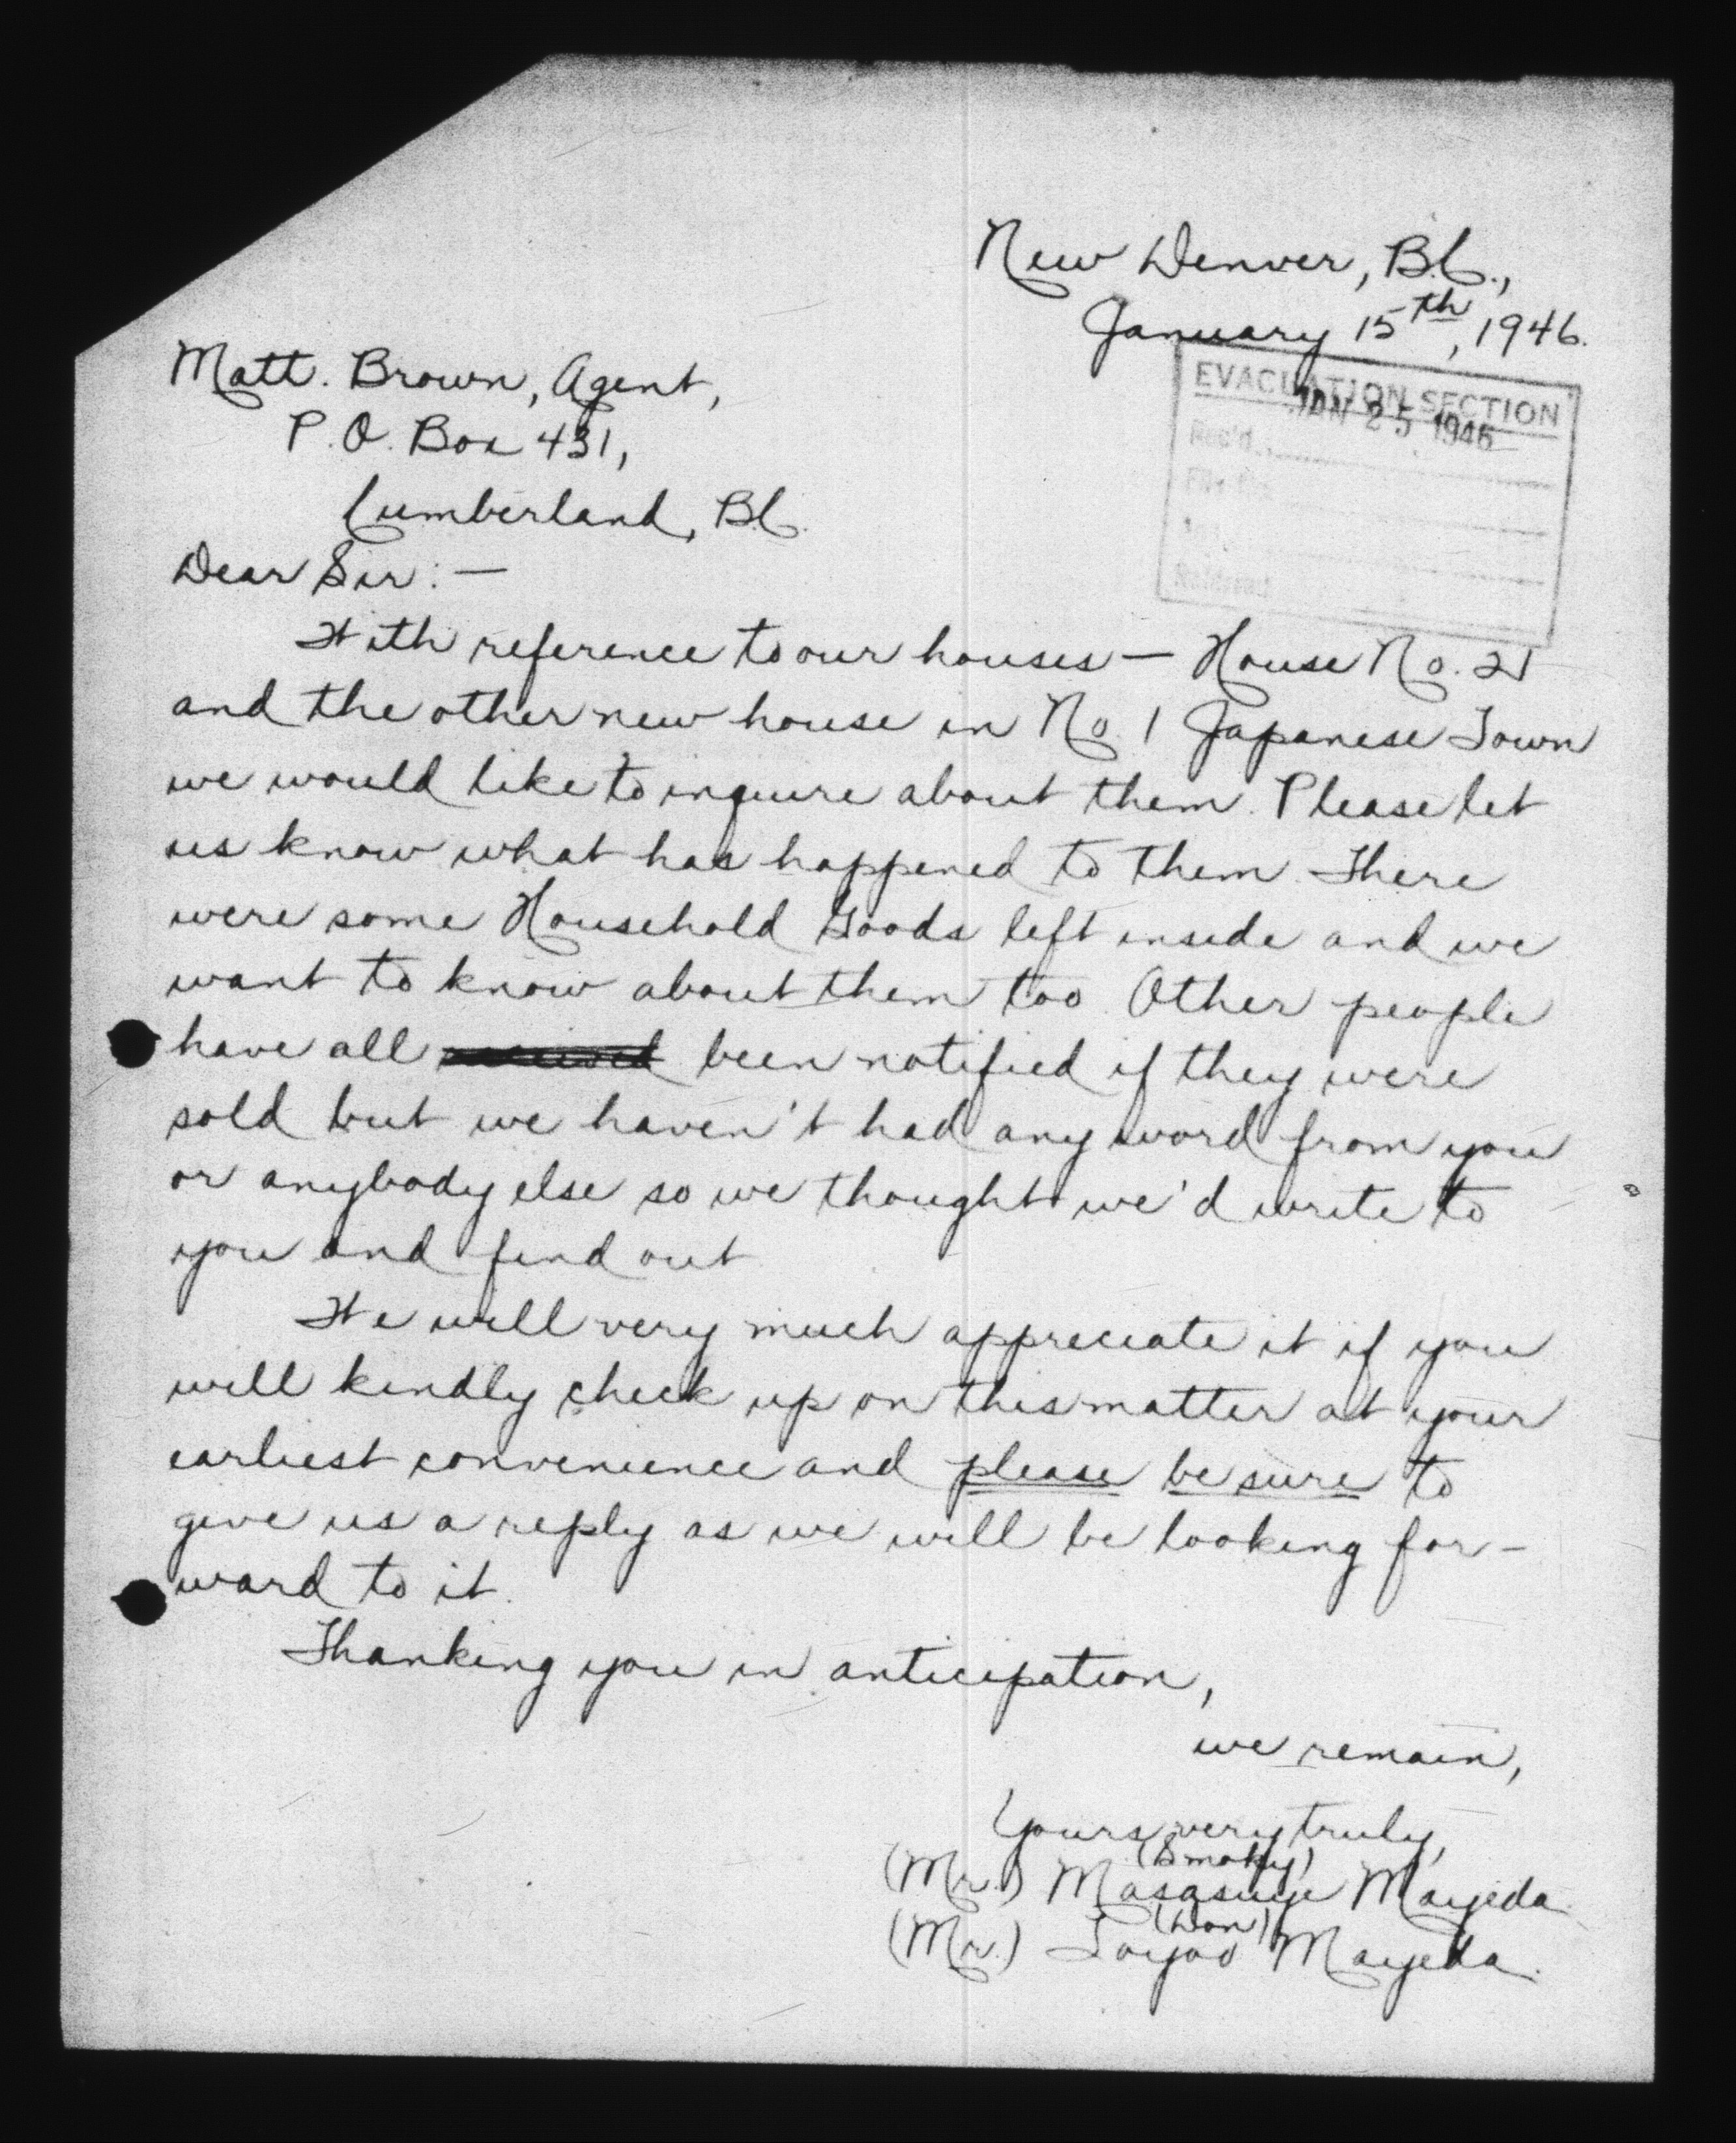 New Denver, B.C.,
January 15th, 1946.
EVACUATION SECTION
JAN 25 1946
Rec'd
File No.
Matt. Brown, Agent,
P.O. Box 431,
Cumberland, B.C.
Dear Sir:—
With reference to our houses — House No. 21
and the other new house in No. 1 Japanese Town
we would like to inquire about them. Please let
us know what has happened to them. There
were some Household Goods left inside and we
want to know about them too. Other people
have all been notified if they were
sold but we haven't had any word from you
or anybody else so we thought we'd write to
you and find out
We will very much appreciate it if you
will kindly check up on this matter at your
earliest convenience and please be sure to
give us a reply as we will be looking for-
ward to it.
Thanking you in anticipation,
we remain,
Yours very truly,
(Smoky)
(Mr.) Masasuye Mayeda
(Don)
(Mr.) Toyoo Mayeda.